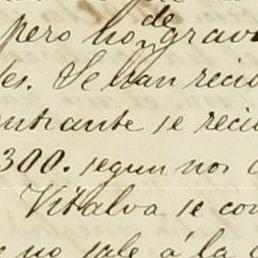 pero no de grav
es. Se han recib
ntrante se reci
300. segun nos
Vitalva se con
no sale á la